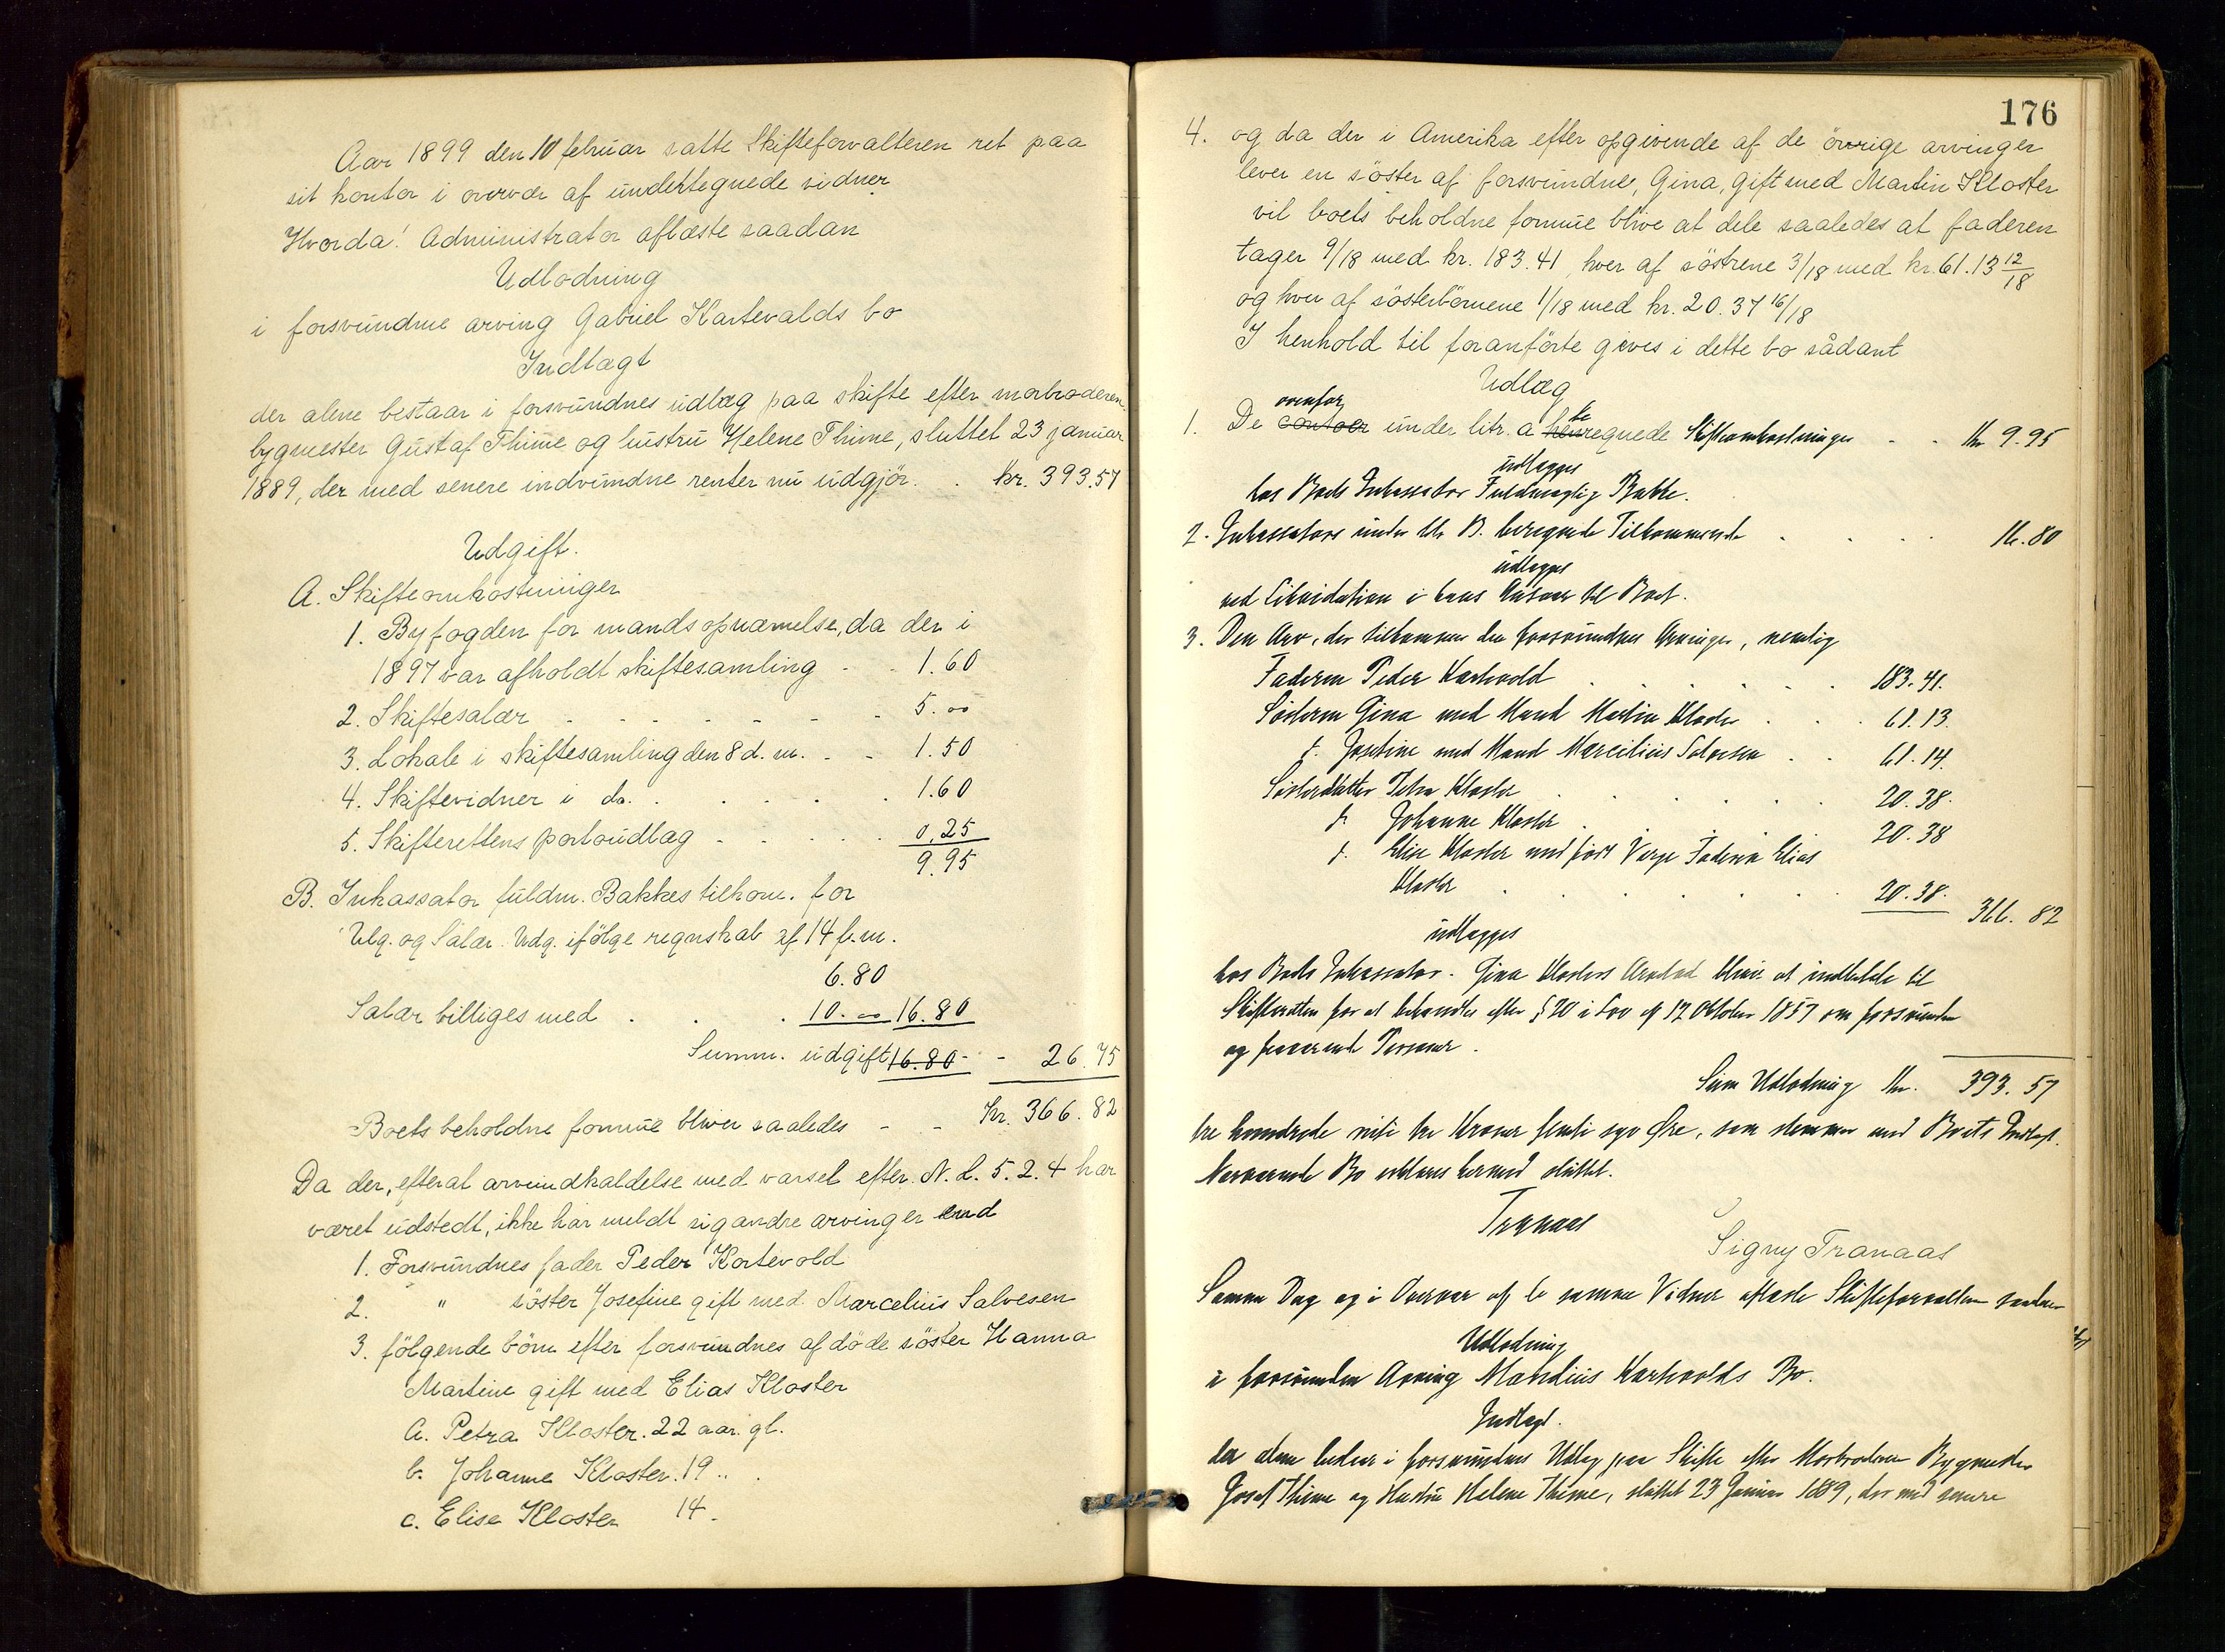 Aar 1899 den 10 februar satte Skifteforvalteren ret paa
sit kontor i overvær af undertegnede vidner
Hvorda! Administrator aflæste saadan
Udlodning
i forsvundne arving Gabriel Kartevolds bo
Indtægt
der alene bestaar i forsvundnes udlæg paa skifte efter morbroderen
bygmester Gustaf Thime og hustru Helene Thime, sluttet 23 januar
1889, der med senere indvundne renter nu udgjør. . kr. 393.57
Udgift.
A. Skifteomkostninger
1. Byfogden for mands opnævnelse, da der i
1897 var afholdt skiftesamling - - 1.60
2. Skiftesalær - - - - - - 5.00
3. Lokale i skiftesamling den 8 d. m. - - 1.50
4. Skiftevidner i do. . . . . 1.60
5. Skifterettens portoudlæg - . . . . 0.25
9.95
B. Inkassator fuldm. Bakkes tilkom. for
Udg. og Salær. Udg. ifølge regnskab af 14 f. m.
6.80
Salær billiges med . . . 10.00 16.80
Summ. udgift 16.80 - - 26.75
Boets beholdne formue bliver saaledes - - Kr. 366.82
Da der, efterat arveindkaldelse med varsel efter N. L. 5.2.4 har
været udstedt, ikke har meldt sig andre arvinger end
1. Forsvundnes fader Peder Kortevold
2. " søster Josefine gift med Marcelius Salvesen
3. følgende børn efter forsvundnes afdøde søster Hanna
Martine gift med Elias Kloster
a. Petra Kloster. 22 aar. gl.
b. Johanne Kloster. 19 " .
c. Elise Kloster 14 .
176
4. og da der i Amerika efter opgivende af de øvrige arvinger
lever en søster af forsvundne, Gina, gift med Martin Kloster
vil boets beholdne formue blive at dele saaledes at faderen
tager 9/18 med kr. 183.41, hver af søstrene 3/18 med kr. 61.13 12/18
og hver af søsterbørnene 1/18 med kr. 20.37 16/18
I henhold til foranførte gives i dette bo sådant
Udlæg
ovenfor be
1. De under litr. a regnede Skifteomkostninger - - Kr 9.95
udlægges
hos Boets Inkassator Fuldmægtig Bakke.
2. Inkassators under litr B. beregnede Tilkommende . . . . 16.80
udlægges
ved Likvidation i hans Ansvar til Boet.
3. Den Arv, der tilkommer den forsvundnes Arvinger, nemlig
Faderen Peder Kartevold . . . . . . 183.41.
Søsteren Gina med Mand Martin Kloster . . . 61.13.
d. Josefine med Mand Marcilius Salvesen . . 61.14.
Søsterdatter Petra Kloster . . . . . . 20.38.
d. Johanne Kloster . . . . 20.38
d. Elise Kloster med født Verge Faderen Elias
Kloster . . . . . . 20.38. 366.82
udlægges
hos Boets Inkassator. Gina Klosters Arvelod bliver at indbetale til
Skifteretten for at behandles efter § 20 i Lov af 12 Oktober 1857 om forsvundne
og fraværende Personer.
Sum Udlodning Kr. 393.57
tre hundrede niti tre Kroner femti syv Øre, som stemmer med Boets Indtægt.
Nærværende Bo erklæres hermed sluttet.
Tranaas
Signy Tranaas
Samme Dag og i Overvær af de samme Vidner aflæste Skifteforvalteren saadan
Udlodning
i forsvundne Arving Mandius Kartevolds Bo.
Indtægt.
der alene bestaar i forsvundnes Udlæg paa Skifte efter Morbroderen Bygmester
Gustaf Thime og Hustru Helene Thime, sluttet 23 Januar 1889, der med senere